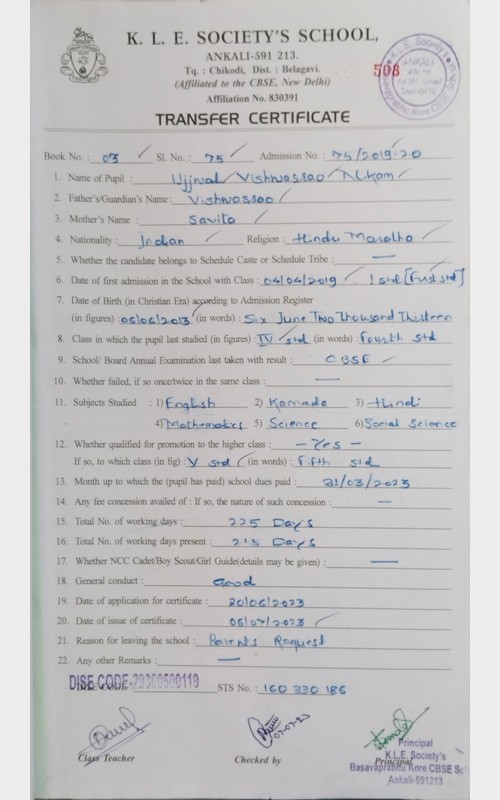 K. L. E. SOCIETY'S SCHOOL,
ANKALI-591 213.
Tq. : Chikodi, Dist. : Belagavi.
(Affiliated to the CBSE, New Delhi)
Affiliation No. 830391
508
K.L.E. Society's
ANKALI
TRANSFER CERTIFICATE
Book No. : 03 Sl. No. : 75 Admission No. : 75/2019-20
1. Name of Pupil : Ujjwal Vishwasrao Nikam
2. Father's/Guardian's Name : Vishwasrao
3. Mother's Name : Savita
4. Nationality : Indian Religion : Hindu Maratha
5. Whether the candidate belongs to Schedule Caste or Schedule Tribe : —
6. Date of first admission in the School with Class : 04/04/2019 I std [First std]
7. Date of Birth (in Christian Era) according to Admission Register
(in figures) : 06/06/2013 (in words) : Six June Two Thousand Thirteen
8. Class in which the pupil last studied (in figures) : IV std (in words) : Fourth std
9. School/ Board Annual Examination last taken with result : CBSE
10. Whether failed, if so once/twice in the same class : —
11. Subjects Studied : 1) English 2) Kannada 3) Hindi
4) Mathematics 5) Science 6) Social Science
12. Whether qualified for promotion to the higher class : - Yes -
If so, to which class (in fig) : V std (in words) : Fifth std
13. Month up to which the (pupil has paid) school dues paid : 31/03/2023
14. Any fee concession availed of : If so, the nature of such concession : —
15. Total No. of working days : 225 Days
16. Total No. of working days present : 215 Days
17. Whether NCC Cadet/Boy Scout/Girl Guide(details may be given) : —
18. General conduct : Good
19. Date of application for certificate : 20/06/2023
20. Date of issue of certificate : 06/07/2023
21. Reason for leaving the school : Parents Request
22. Any other Remarks : —
DISE CODE-29300500119 STS No. : 160 330 186
07-07-23
Class Teacher Checked by Principal
Principal
K.L.E. Society's
Basavaprabhu Kore CBSE
Ankali-591213